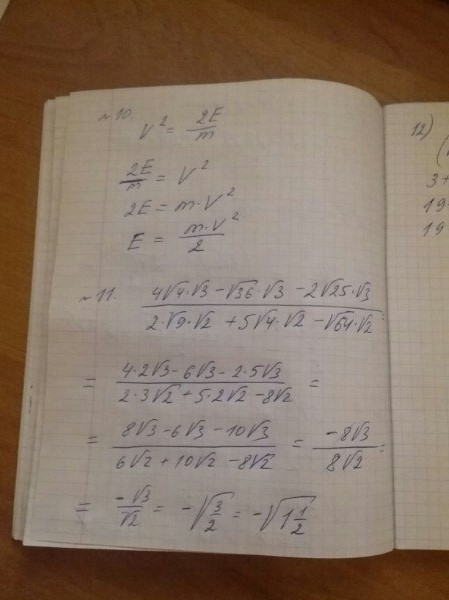 №10.
V² = 2E/m
2E/m = V²
2E = m·V²
E = m·V²/2
№11. (4√4·√3 − √36·√3 − 2√25·√3)/(2·√9·√2 + 5√4·√2 − √64·√2) =
= (4·2√3 − 6√3 − 2·5√3)/(2·3√2 + 5·2√2 − 8√2) =
= (8√3 − 6√3 − 10√3)/(6√2 + 10√2 − 8√2) = −8√3/8√2 =
= −√3/√2 = −√(3/2) = −√(1 1/2)
12)
(
3+
19
19